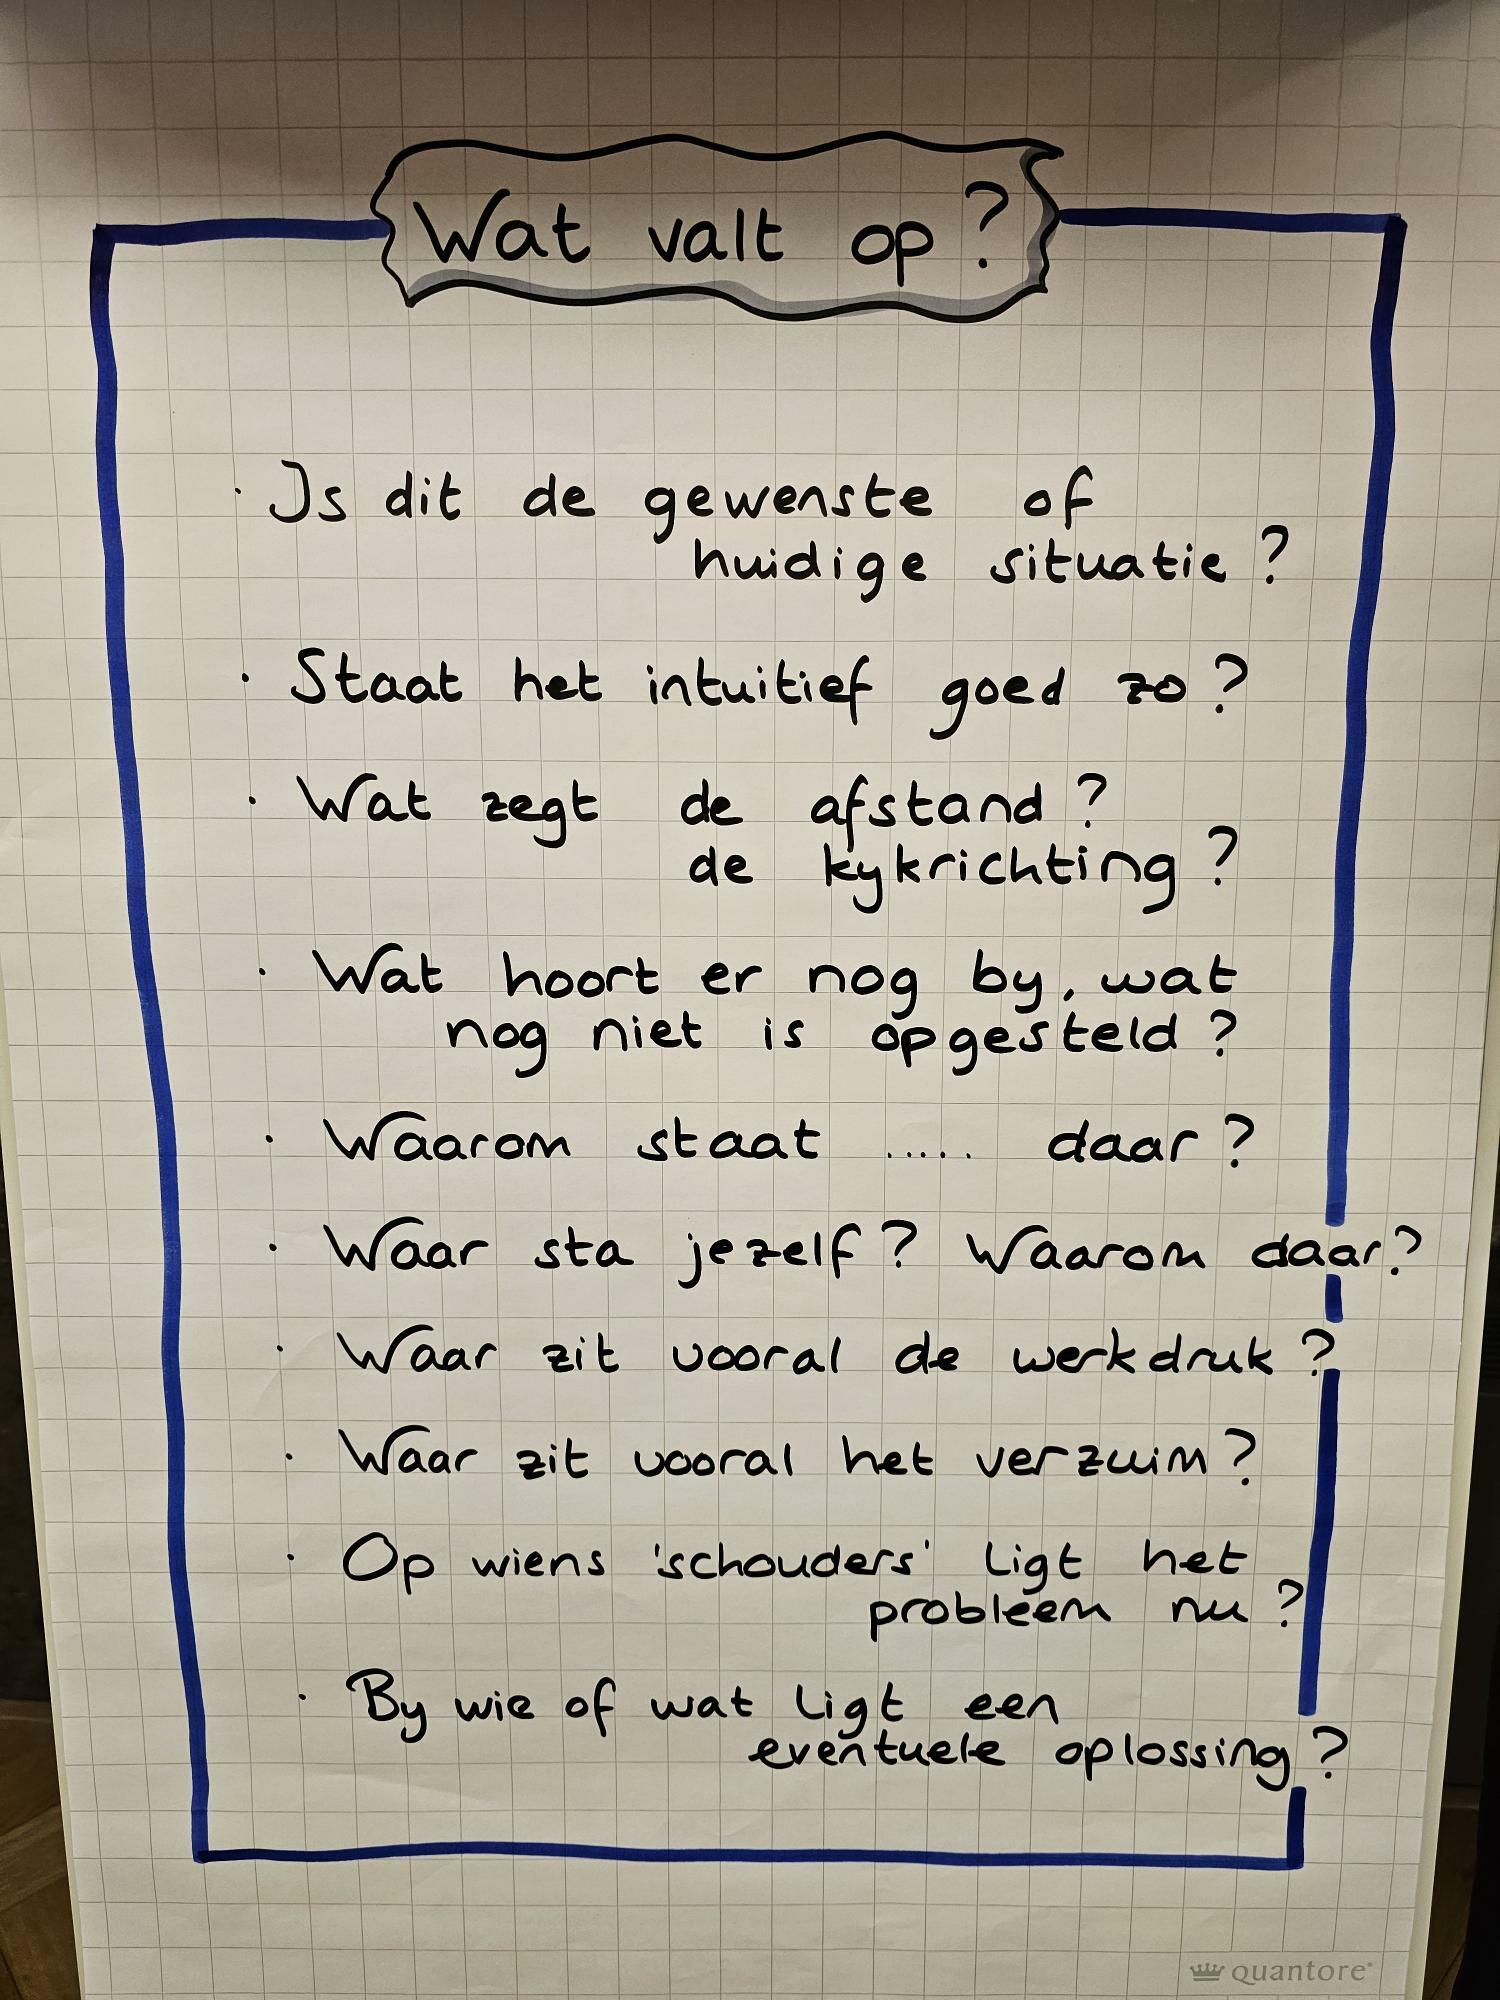 Wat valt op?
· Is dit de gewenste of
huidige situatie?
· Staat het intuitief goed zo?
· Wat zegt de afstand?
de kykrichting?
· Wat hoort er nog by, wat
nog niet is opgesteld?
· Waarom staat ..... daar?
· Waar sta jezelf? Waarom daar?
· Waar zit vooral de werkdruk?
· Waar zit vooral het verzuim?
· Op wiens 'schouders' ligt het
probleem nu?
· By wie of wat ligt een
eventuele oplossing?
quantore